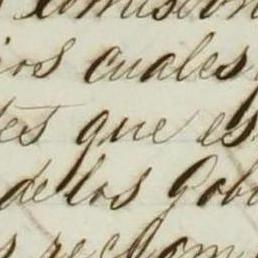 comision
ios cuales
tes que es
de los Gob
s reclam